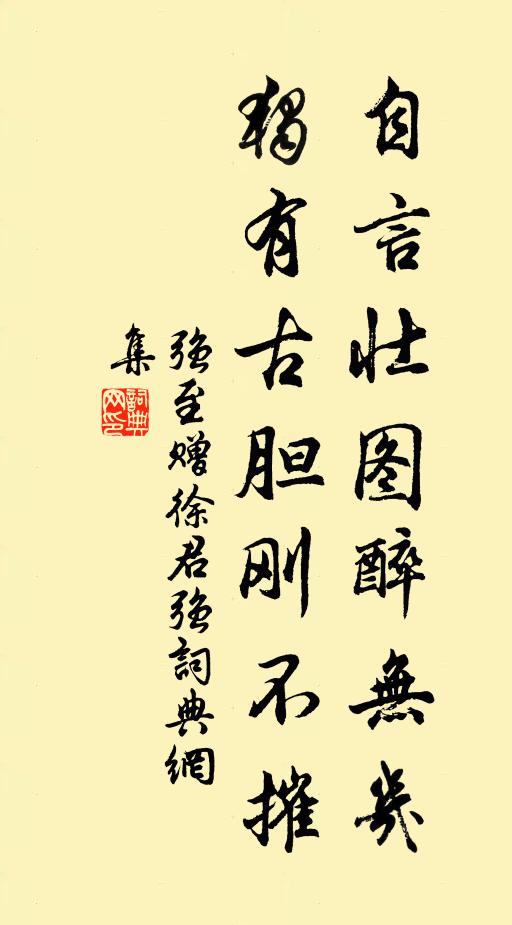 自言壮图醉無幾
獨有古胆刚不摧
强至赠徐君强詞典網
集
詞典
网印